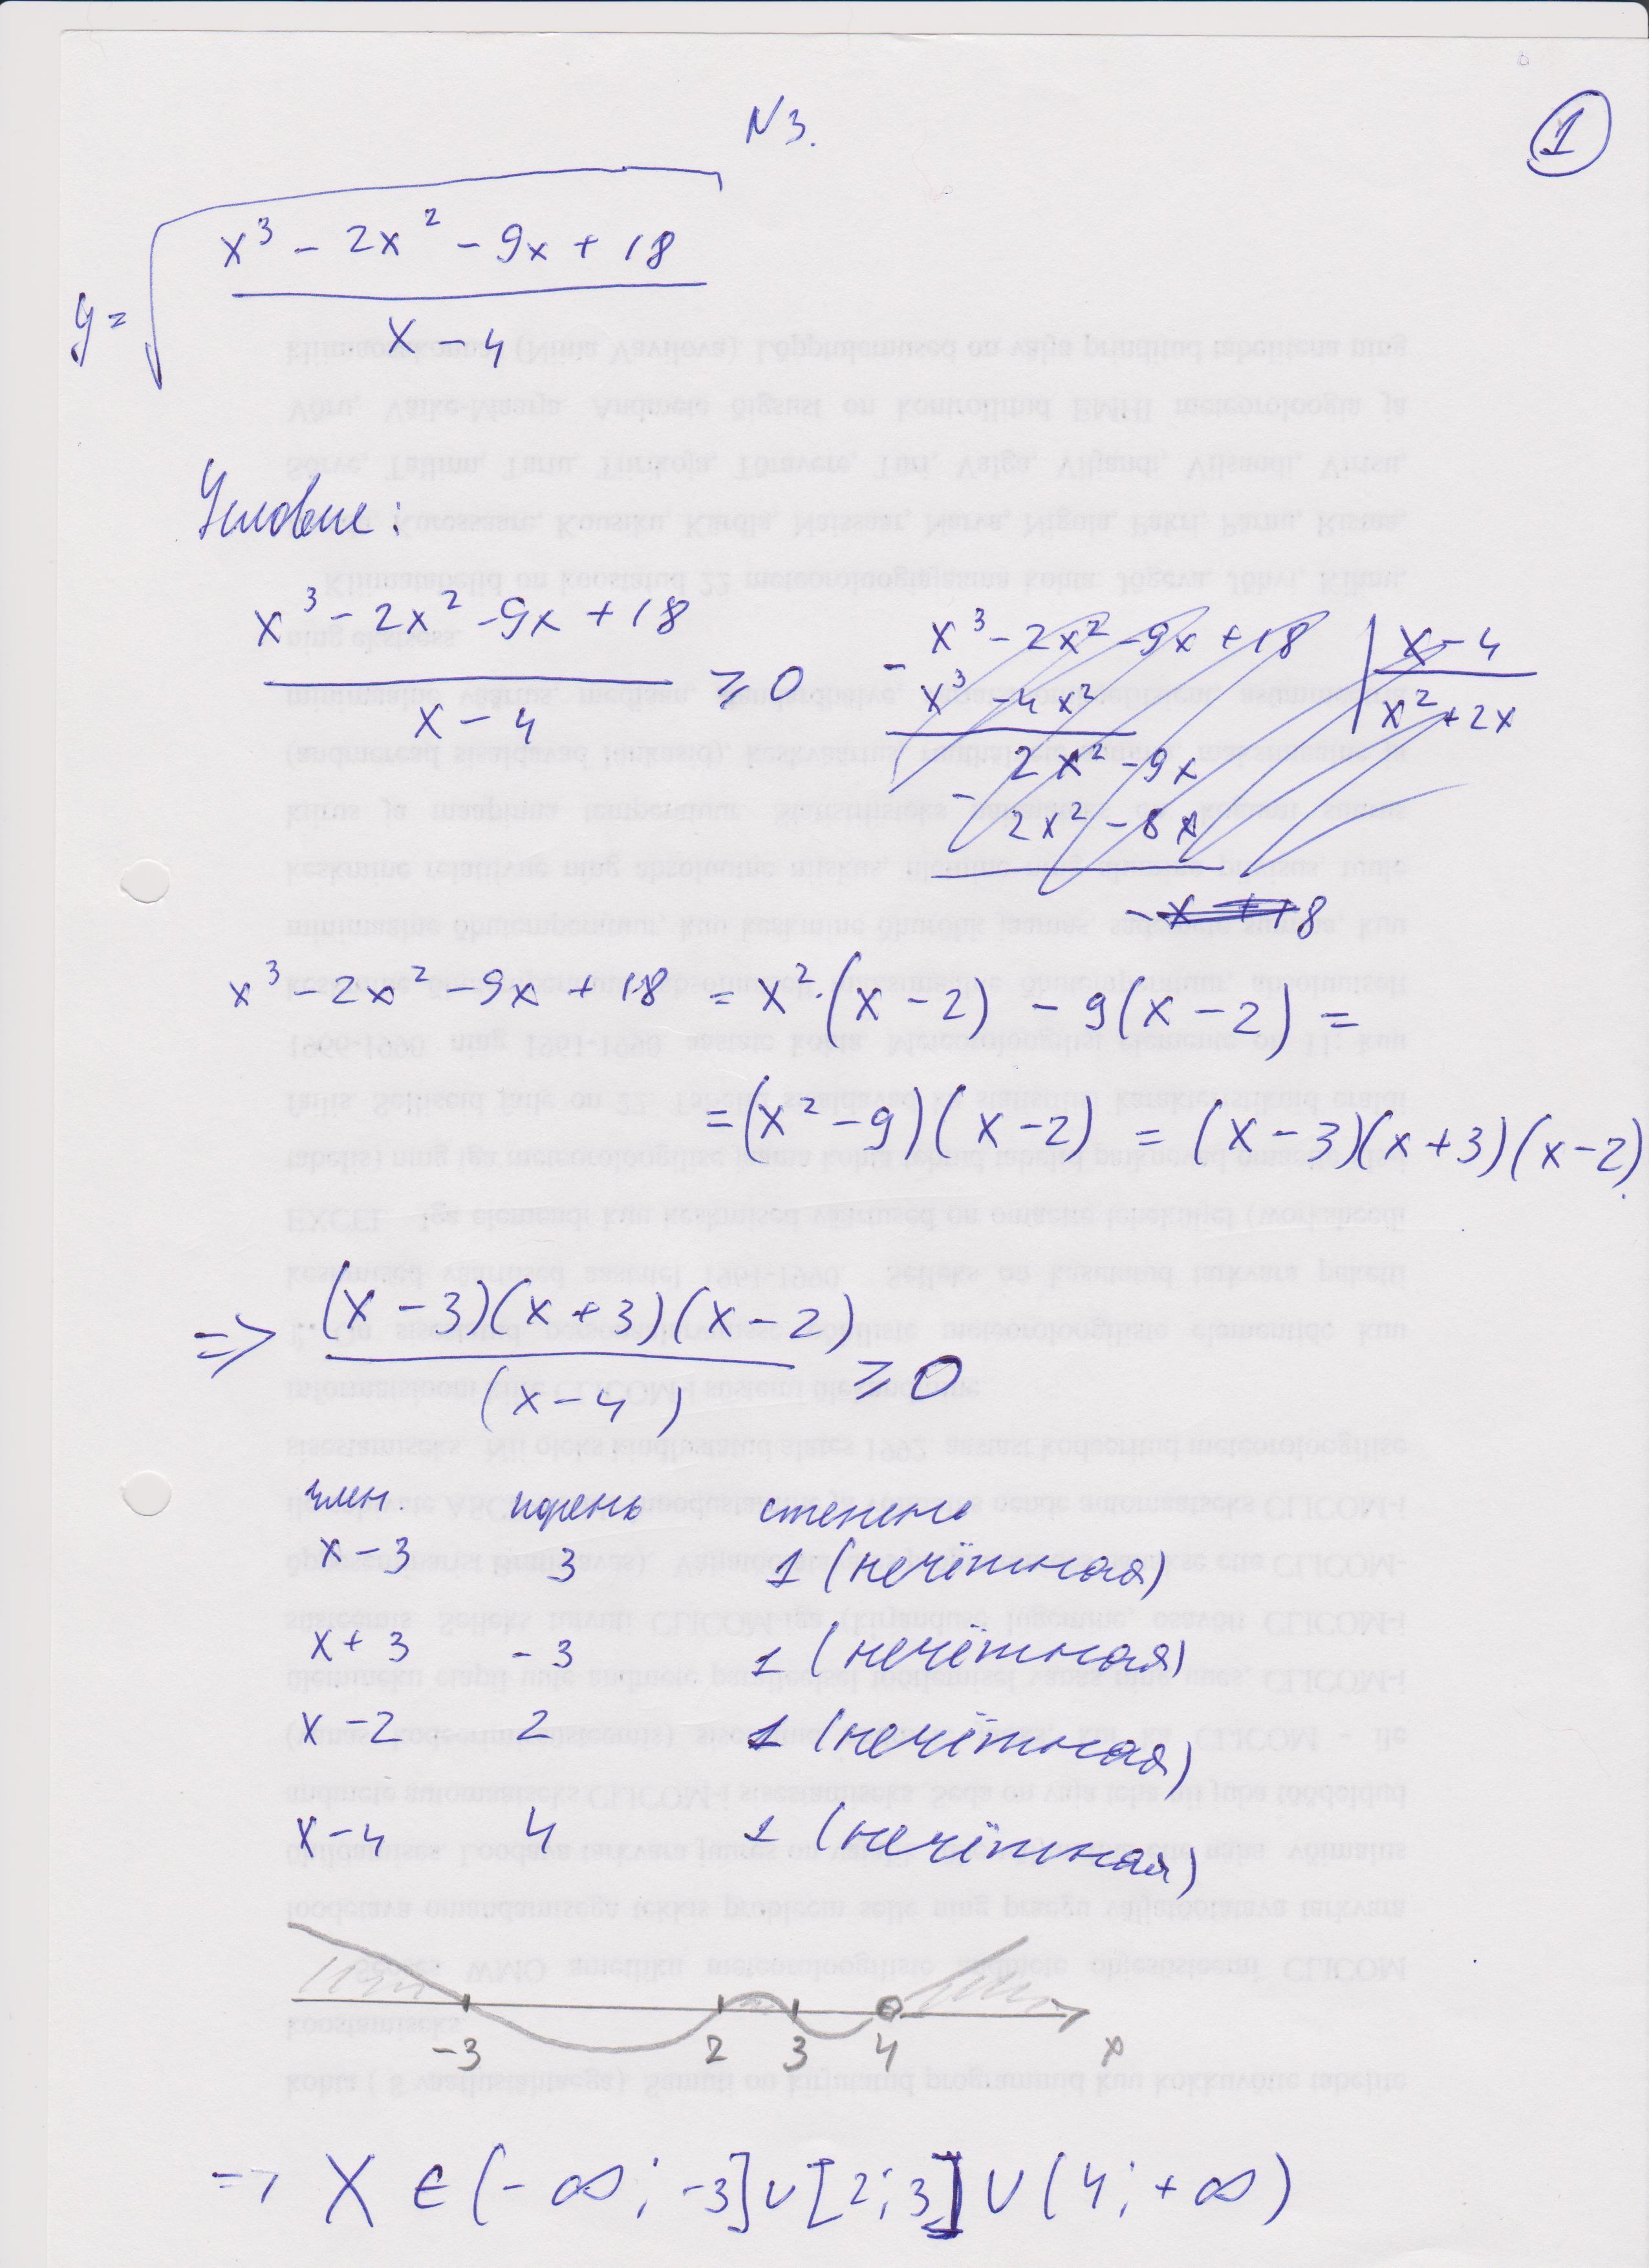 N3.
1
y = √((x³ - 2x² - 9x + 18)/(x - 4))
Условие:
(x³ - 2x² - 9x + 18)/(x - 4) ≥ 0
x³ - 2x² - 9x + 18 | x - 4
- x³ - 4x² | x² + 2x
2x² - 9x
- 2x² - 8x
- x + 18
x³ - 2x² - 9x + 18 = x²·(x - 2) - 9(x - 2) =
= (x² - 9)(x - 2) = (x - 3)(x + 3)(x - 2)
=> (x - 3)(x + 3)(x - 2)/(x - 4) ≥ 0
член. корень степень
x - 3 3 1 (нечётная)
x + 3 - 3 1 (нечётная)
x - 2 2 1 (нечётная)
x - 4 4 1 (нечётная)
-3 2 3 4 x
=> X ∈ (- ∞; -3] ∪ [2; 3] ∪ (4; + ∞)